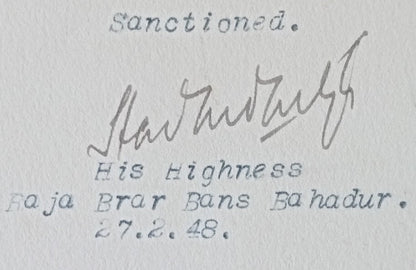 Sanctioned.
His Highness
Raja Brar Bans Bahadur.
27.2.48.